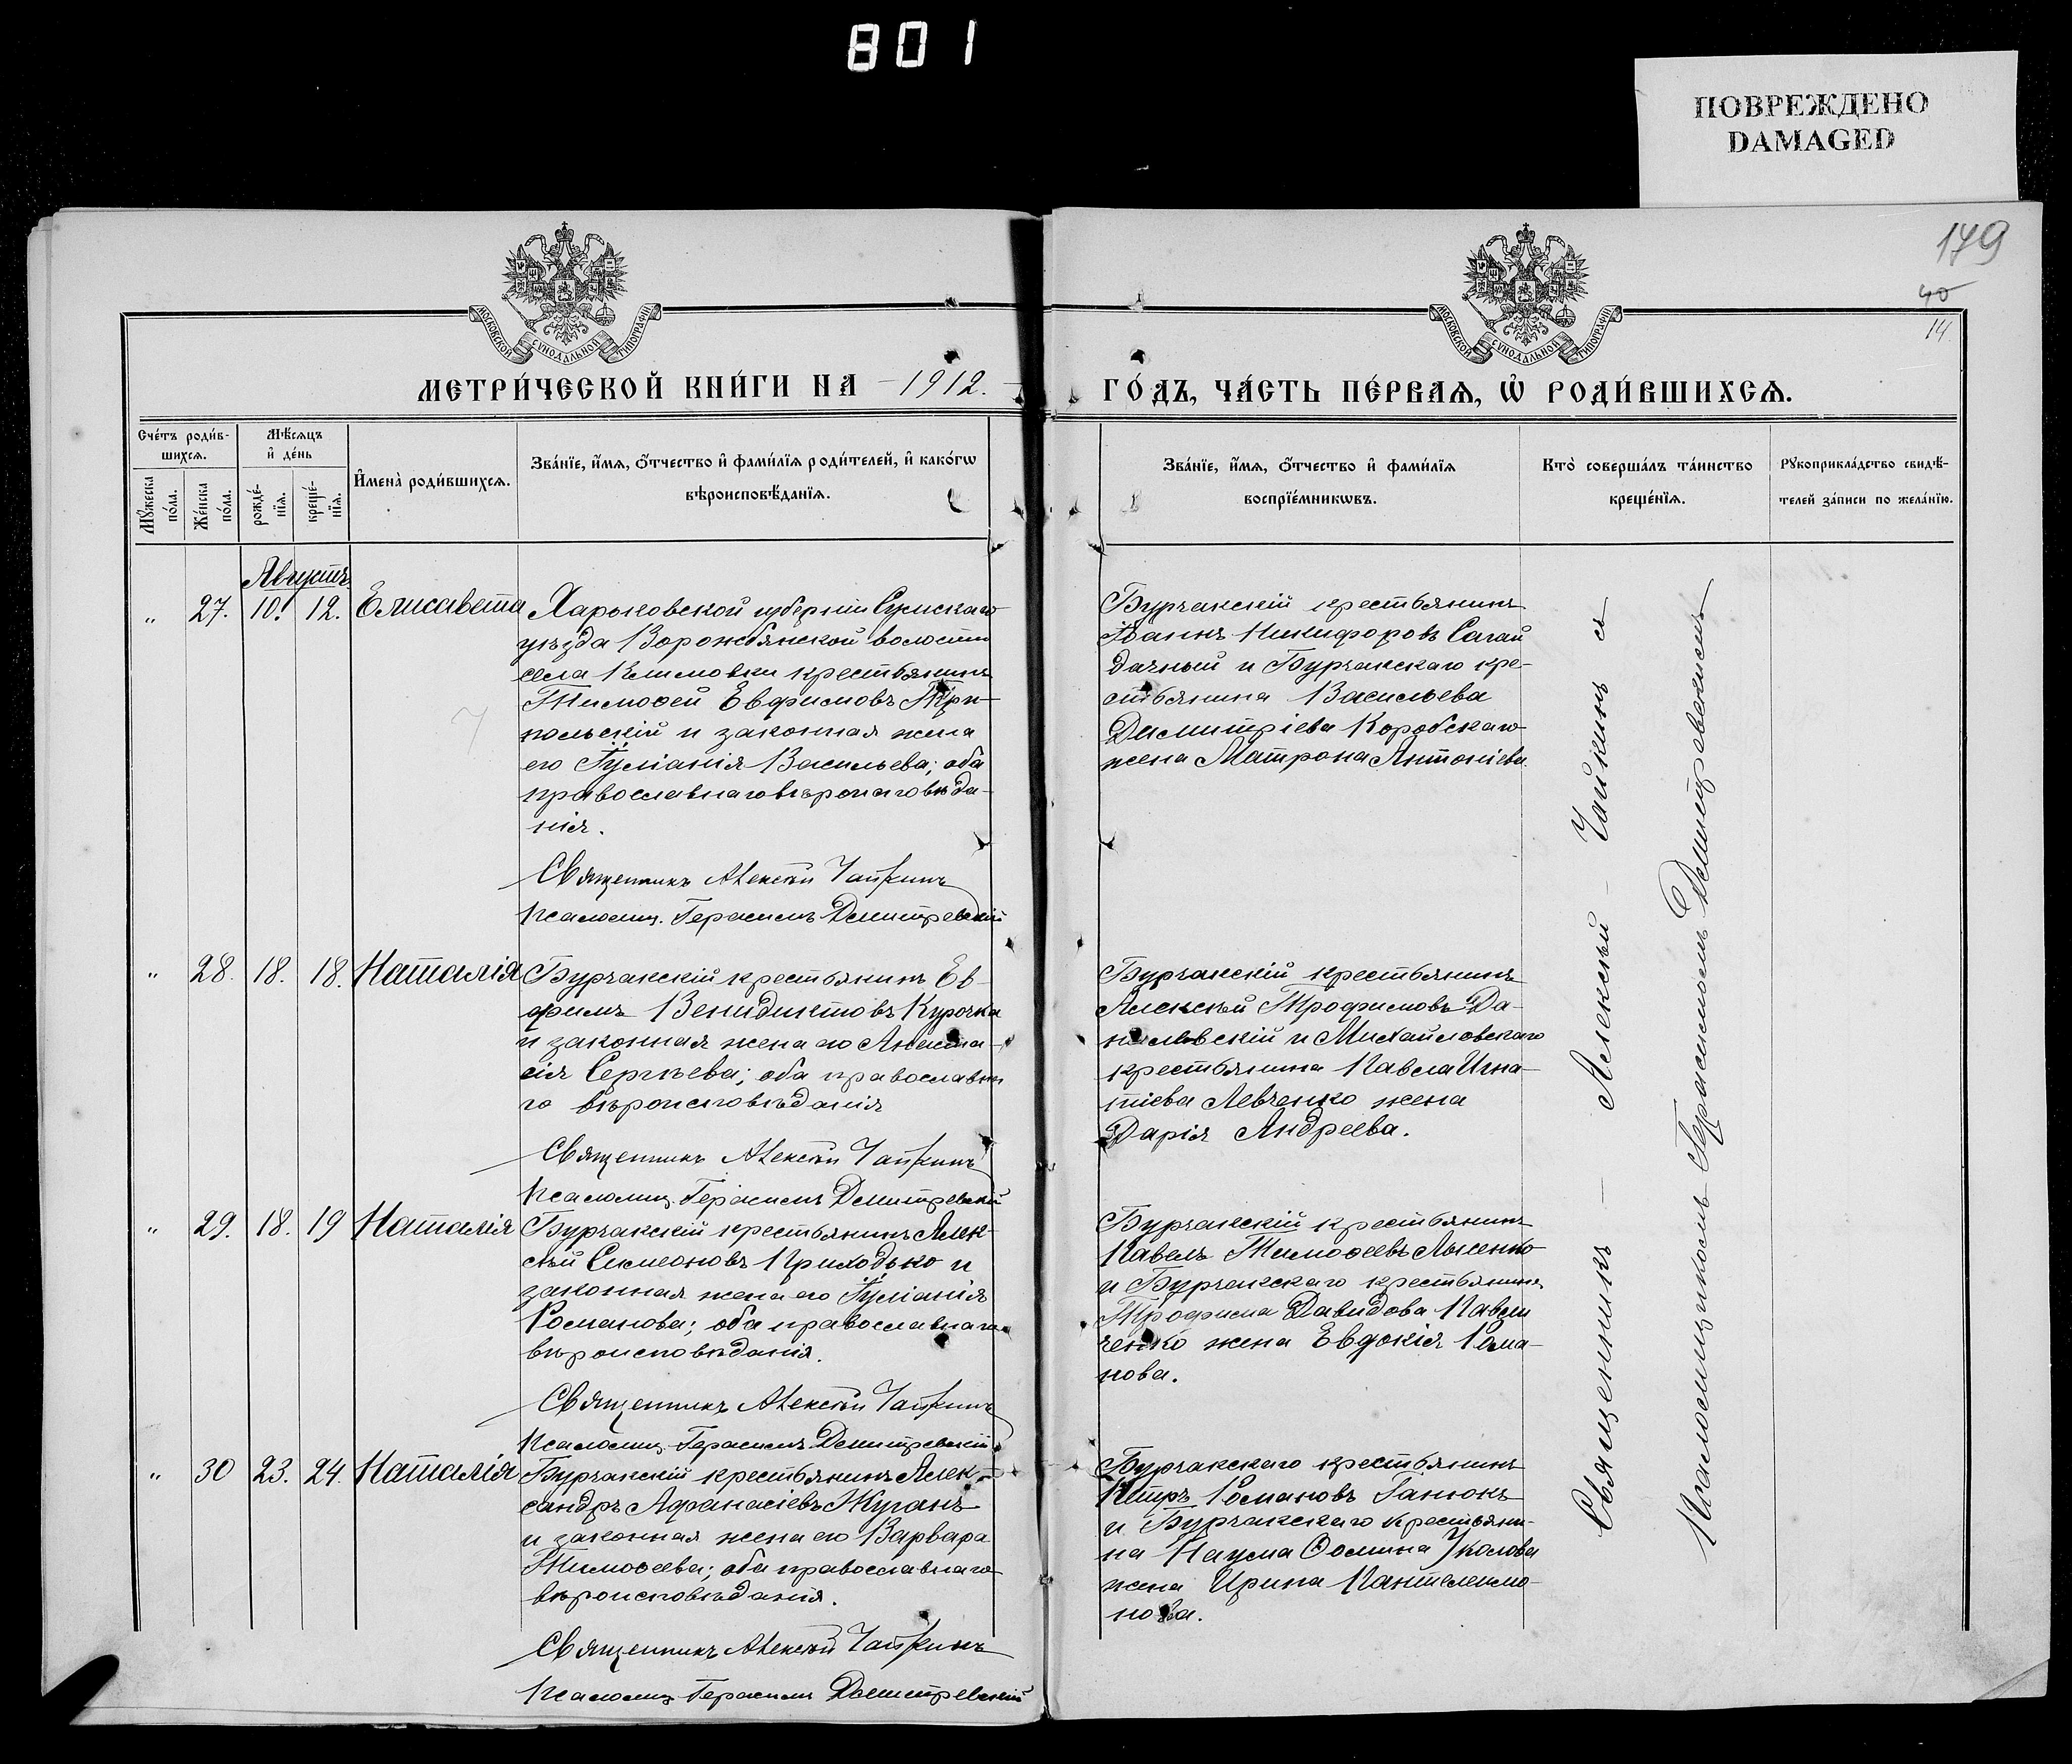 801
ПОВРЕЖДЕНО
DAMAGED
179
40
14
МОСКОВСКОЙ СѴНОДАЛЬНОЙ ТИПОГРАФІИ
МОСКОВСКОЙ СѴНОДАЛЬНОЙ ТИПОГРАФІИ
МЕТРИ́ЧЕСКОЙ КНИ́ГИ НА 1912.
ГО́ДЪ, ЧА́СТЬ ПЕ́РВАѦ, Ѽ РОДИ́ВШИХСѦ.
Сче́тъ роди́в-
шихсѧ.
Мꙋ́жеска по́ла.
Же́нска по́ла.
Мѣ́сѧцъ
и҆ де́нь
рожде́-нїѧ.
креще́-нїѧ.
И҆мена̀ роди́вшихсѧ.
Зва́нїе, и҆́мѧ, ѻ҆́тчество и҆ фами́лїѧ роди́телей, и҆ како́гѡ
вѣроисповѣ́данїѧ.
Зва́нїе, и҆́мѧ, ѻ҆́тчество и҆ фами́лїѧ
воспрїе́мникѡвъ.
Кто̀ соверша́лъ та́инство
креще́нїѧ.
Рꙋкоприкла́дство свидѣ́-
телей за́писи по жела́нїю.
Августъ
„ 27. 10. 12. Елисавета
Харьковской губерніи Сумскаго
уѣзда Ворожбянской волости
села Климовки крестьянинъ
Тимоѳей Евфимовъ Три-
польскій и законная жена
его Іуліанія Васильева; оба
православнаго вѣроисповѣда-
нія.
Священникъ Алексѣй Чайкинъ
Псаломщ. Герасимъ Демитревскій
Бурчакскій крестьянинъ
Іоаннъ Никифоровъ Сагай
дачный и Бурчакскаго кре-
стьянина Васильева
Димитріева Коробскаго
жена Матрона Антоніева.
„ 28. 18. 18. Наталія
Бурчакскій крестьянинъ Ев-
фимъ Венидиктовъ Курочка
и законная жена его Анаста-
сія Сергѣева; оба православна
го вѣроисповѣданія
Священникъ Алексѣй Чайкинъ
Псаломщ. Герасимъ Демитревскій
Бурчакскій крестьянинъ
Алексѣй Трофимовъ Да-
нилевскій и Михайловскаго
крестьянина Павла Игна-
тіева Левченко жена
Дарія Андреева.
„ 29. 18. 19 Наталія
Бурчакскій крестьянинъ Алек-
сѣй Симеоновъ Приходько и
законная жена его Іуліанія
Романова; оба православнаго
вѣроисповѣданія.
Священникъ Алексѣй Чайкинъ
Псаломщ. Герасимъ Демитревскій
Бурчакскій крестьянинъ
Павелъ Тимоѳеевъ Лысенко
и Бурчакскаго крестьянина
Трофима Давидова Павли
ченко жена Евдокія Рома-
нова.
„ 30 23. 24. Наталія
Бурчакскій крестьянинъ Алек-
сандръ Аѳанасіевъ Жуганъ
и законная жена его Варвара
Тимоѳеева; оба православнаго
вѣроисповѣданія.
Священникъ Алексѣй Чайкинъ
Псаломщ. Герасимъ Демитревскій
Бурчакскаго крестьянинъ
Петръ Романовъ Ганюкъ
и Бурчакскаго крестьяни-
на Наума Ѳомина Уколова
жена Ирина Пантелеимо-
нова.
Священникъ — Алексѣй — Чайкинъ съ
Псаломщикомъ Герасимомъ Демитревскимъ